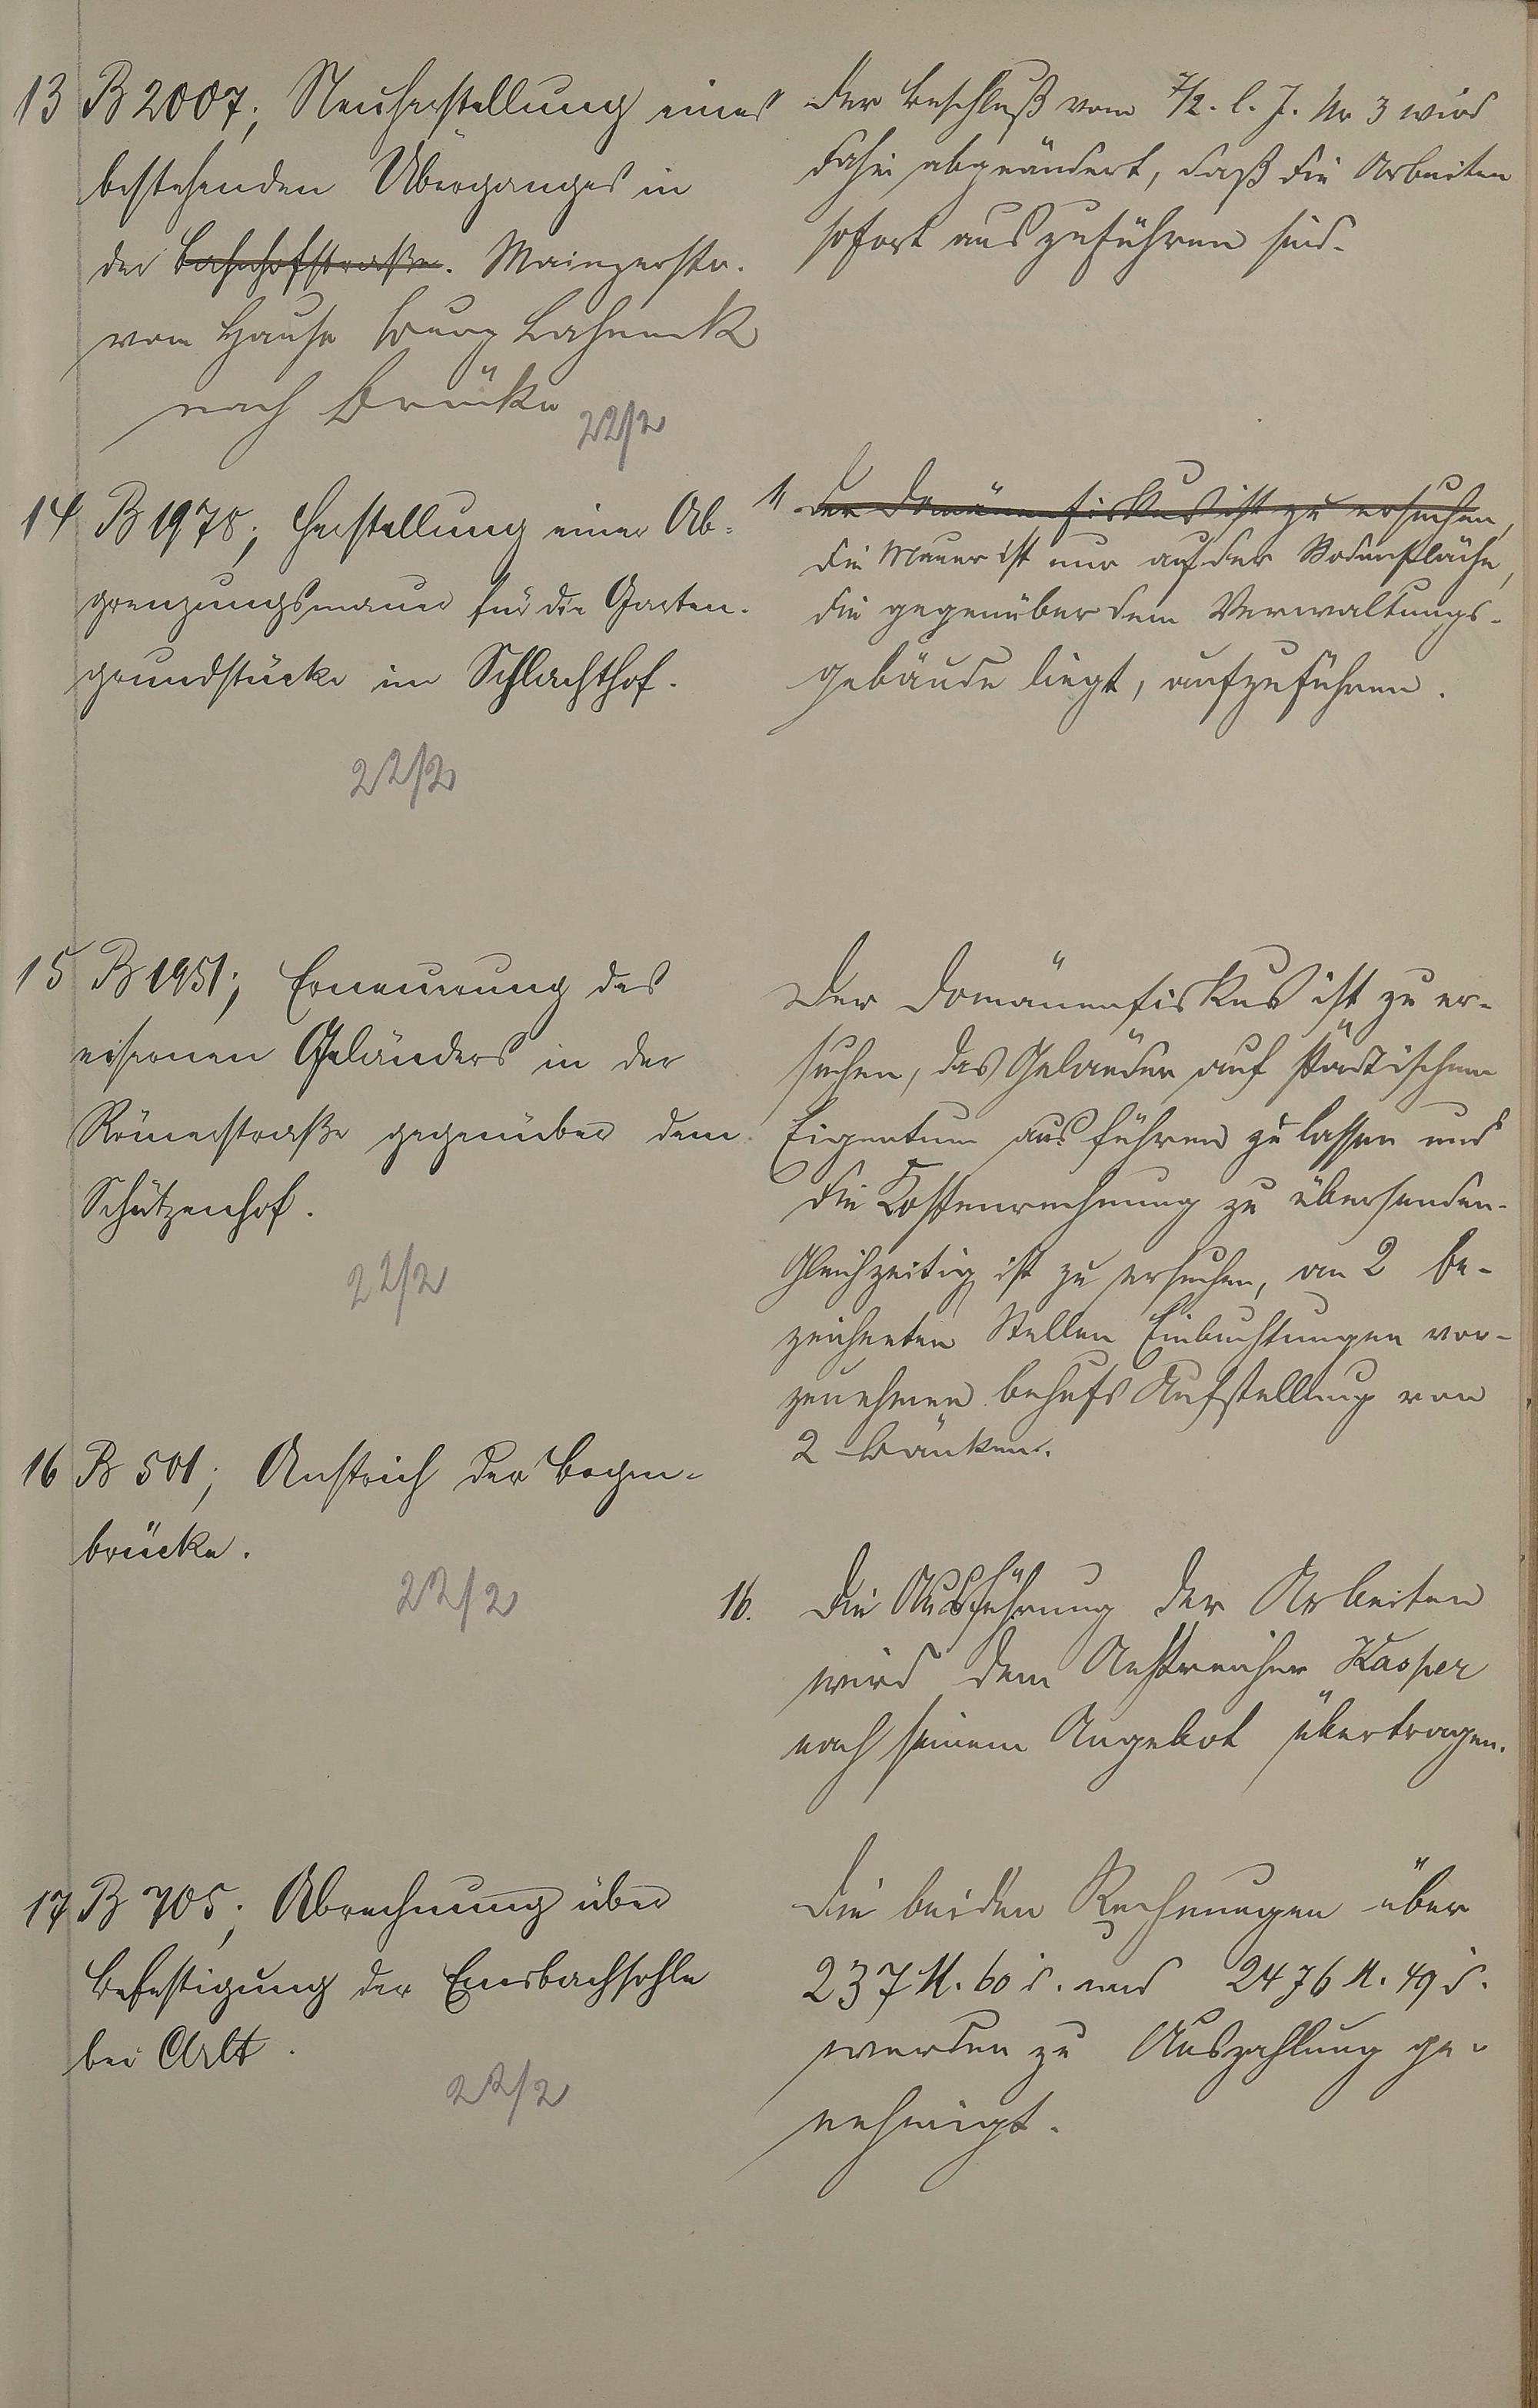 13 B 2007; Neuherstellung eines
bestehenden Überganges in
der Bahnhofstraße. Mainzerstr.
vom Hause Lahneck
nach Brücke
22/2
Der Beschluß vom 7/2. l. J. Nr 3 wird
dahin abgeändert, daß die Arbeiten
sofort auszuführen sind.
14 B 1978; Herstellung einer Ab-
grenzungsmauer für die Garten-
grundstücke im Schlachthof.
22/2
Der Domänenfiskus ist zu ersuchen,
die Mauer ist nur auf der Bodenfläche,
die gegenüber dem Verwaltungs-
gebäude liegt, aufzuführen.
15 B 1951; Erneuerung des
eisernen Geländers in der
Römerstraße gegenüber dem
Schützenhof.
22/2
Der Domänenfiskus ist zu er-
suchen, das Geländer auf städtischem
Eigentum ausführen zu lassen und
die Kostenrechnung zu übersenden.
Gleichzeitig ist zu ersuchen, an 2 be-
zeichneten Stellen Einbuchtungen vor-
zunehmen behufs Aufstellung von
2 Bänken.
16 B 501; Anstrich der Bogen-
brücke.
22/2
16. Die Ausführung der Arbeiten
wird dem Anstreicher Kasper
nach seinem Angebot übertragen.
17 B 705; Abrechnung über
Befestigung der Emsbachsohle
bei Arlt.
22/2
Die beiden Rechnungen über
237 M. 60 d. und 2476 M. 49 d.
werden zu Auszahlung ge-
nehmigt.